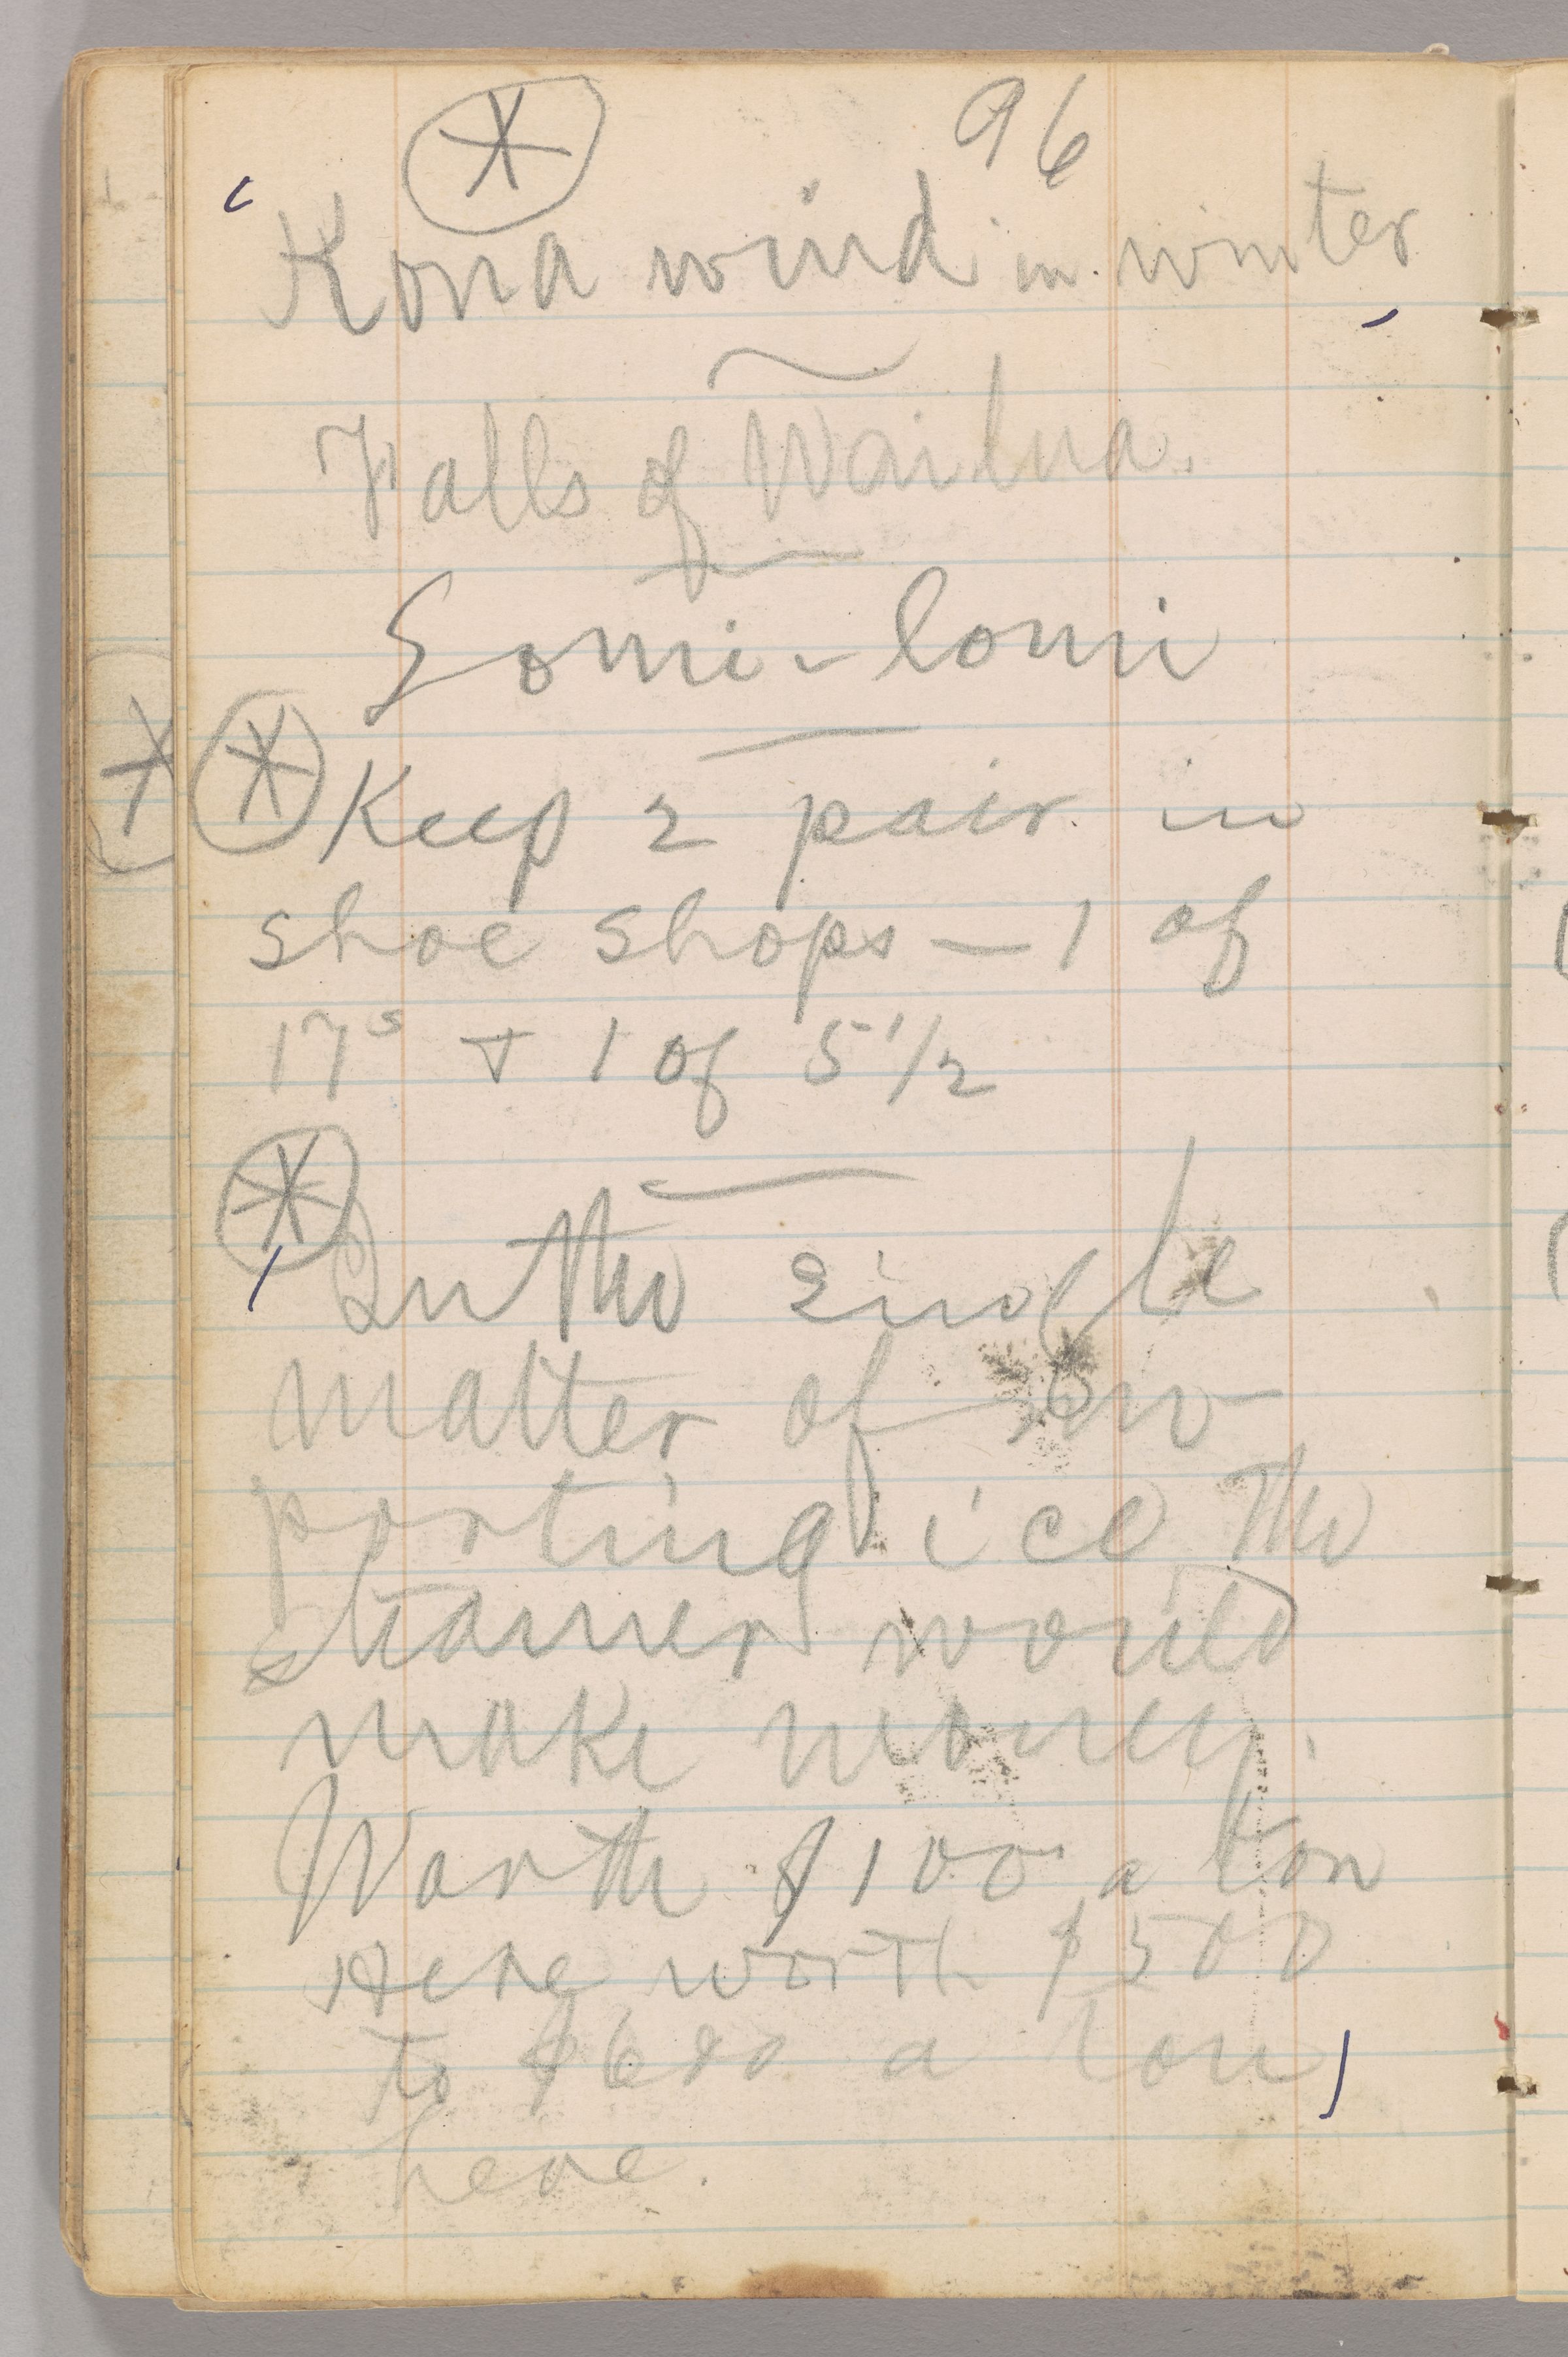 96
Kona wind in winter
Falls of Wailua.
Lomi-lomi
Keep 2 pair in
shoe shops — 1 of
17s & 1 of 5 1/2
In the single
matter of im-
porting ice the
steamer would
make money.
Worth $100 a ton
Here worth $500
to $600 a ton
here.